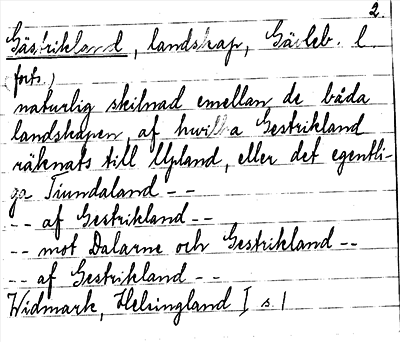 2.
Gästrikland, landskap, Gävleb. l.
(forts.)
naturlig skilnad emellan de båda
landskapen, af hwilka Gestrikland
räknats till Upland, eller det egentli-
ga Tiundaland --
-- af Gestrikland --
-- mot Dalarne och Gestrikland --
-- af Gestrikland --
Widmark, Helsingland I s. 1